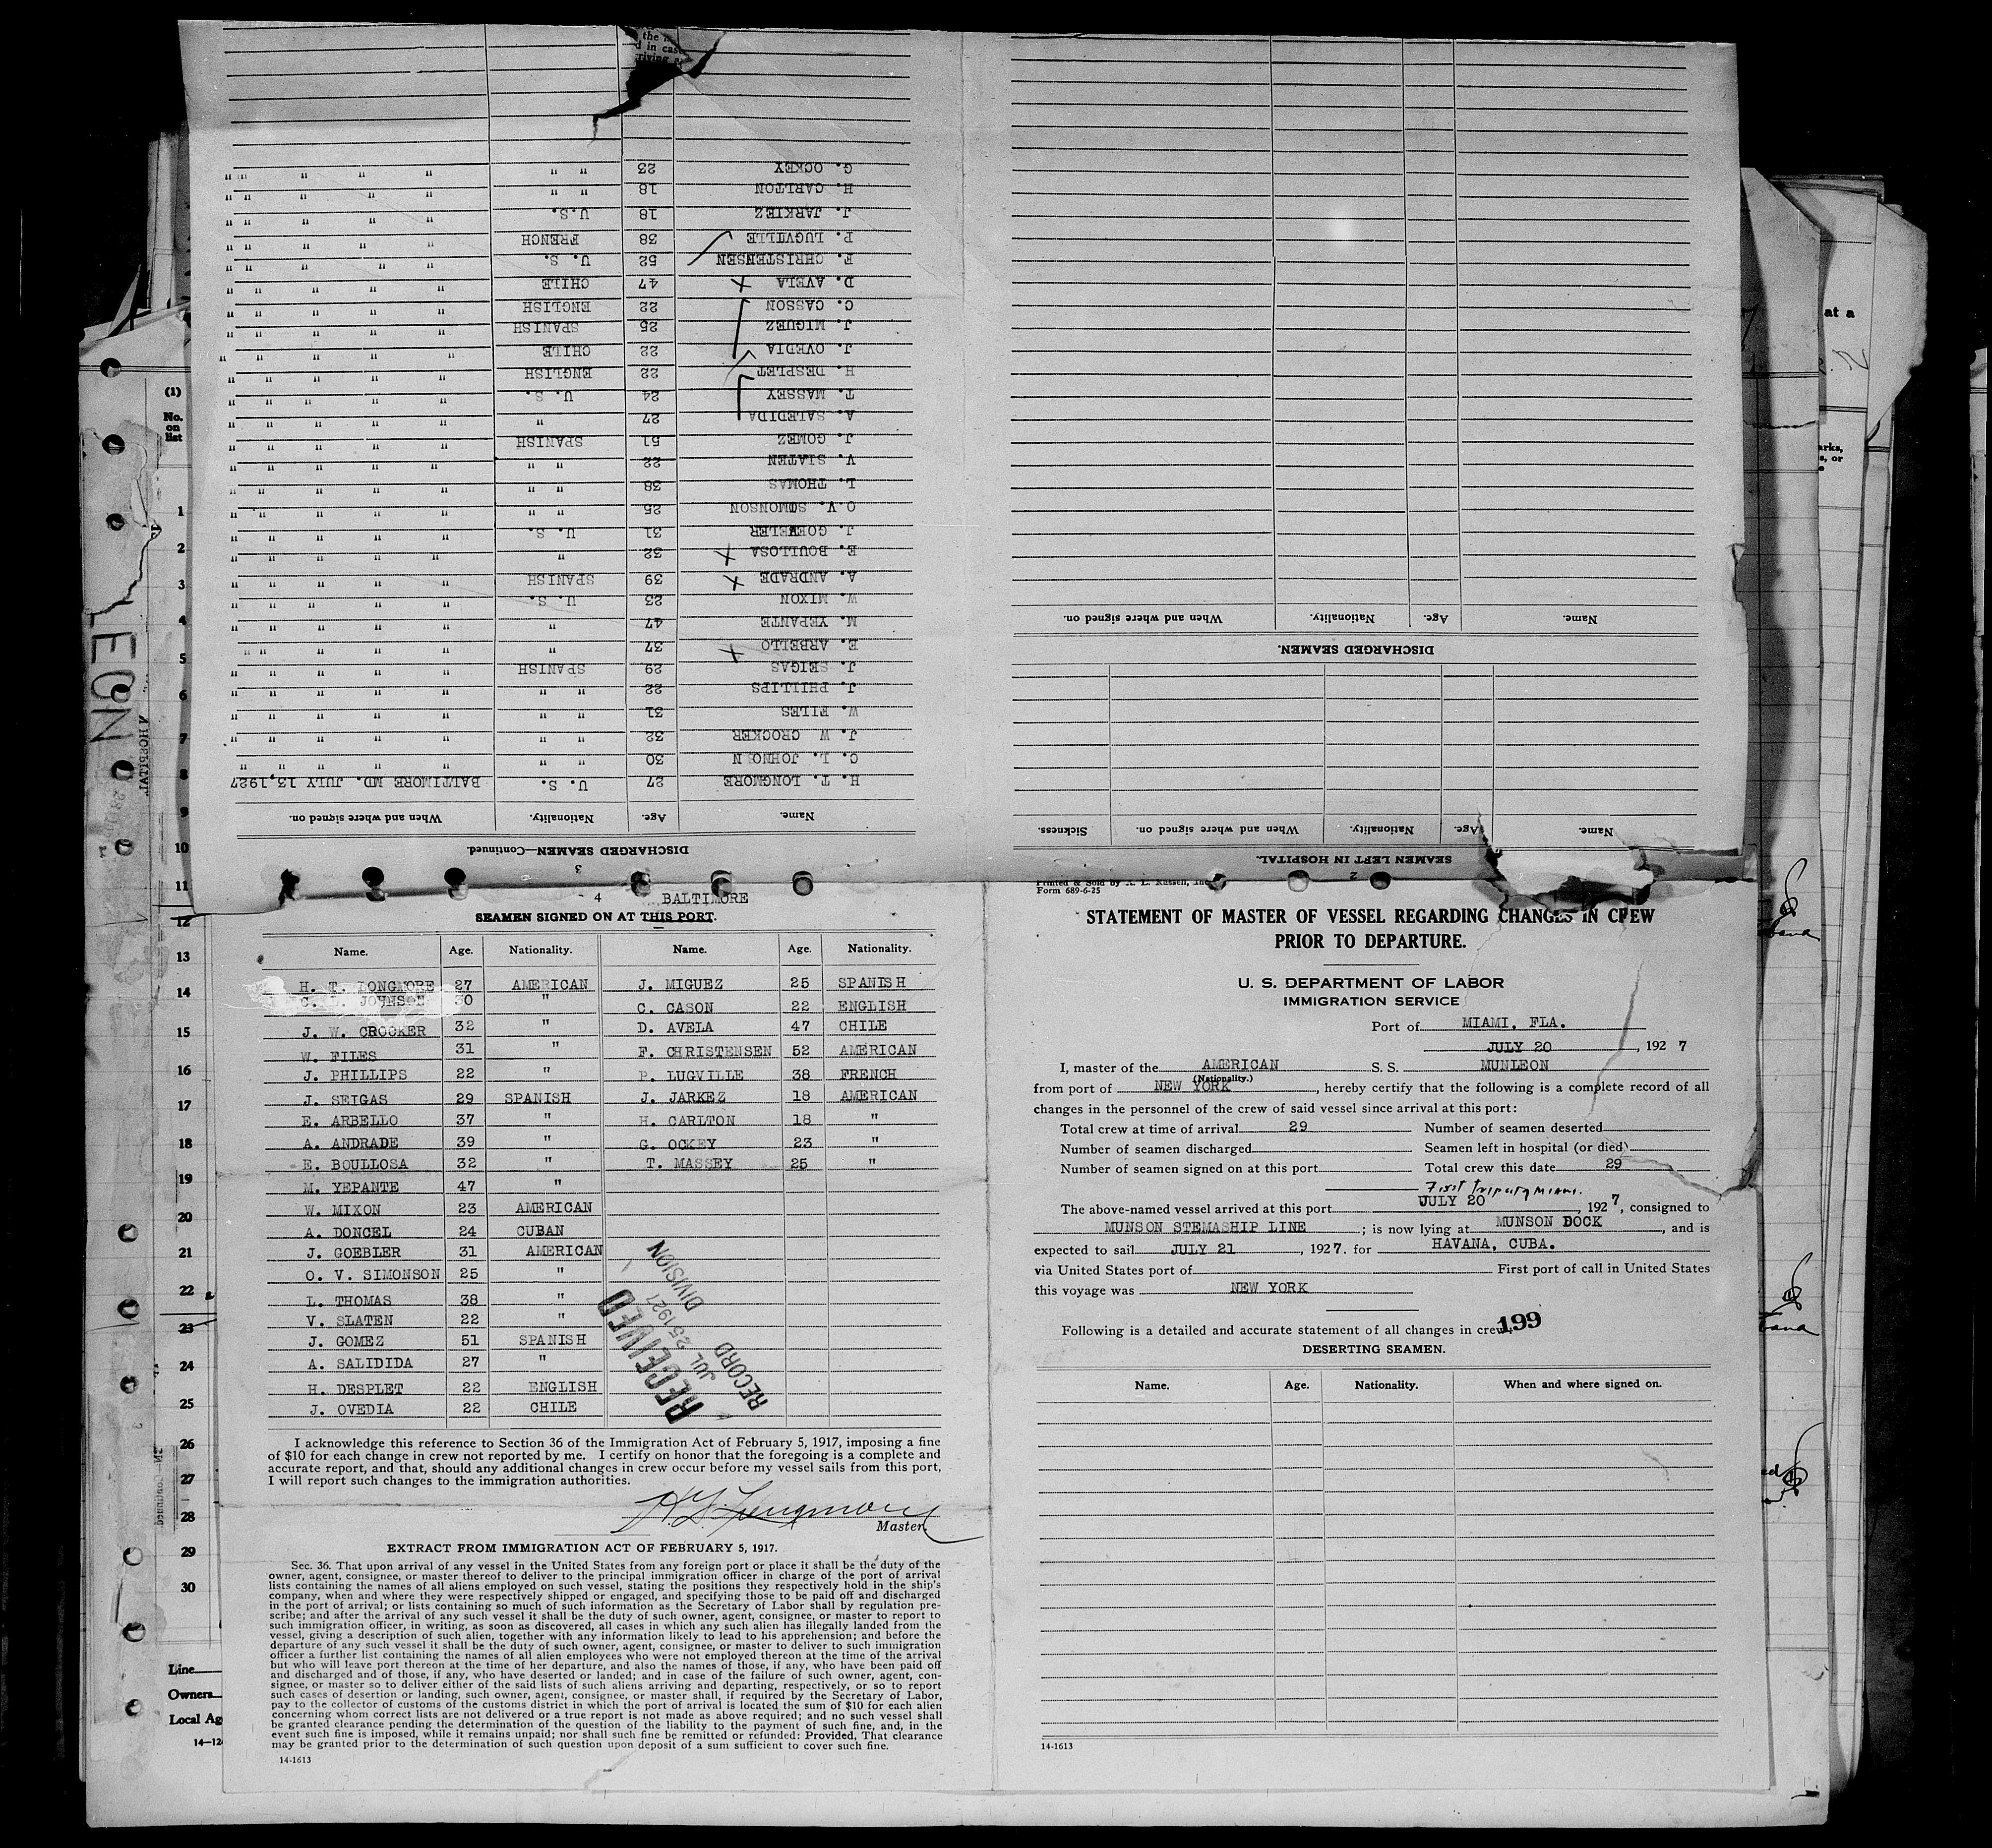 4 BALTIMORE
SEAMEN SIGNED ON AT THIS PORT.
Name. Age. Nationality. Name. Age. Nationality.
H. T. LONGMORE 27 AMERICAN J. MIGUEZ 25 SPANISH
C. L. JOHNSON 30 " C. CASON 22 ENGLISH
J. W. CROCKER 32 " D. AVELA 47 CHILE
W. FILES 31 " F. CHRISTENSEN 52 AMERICAN
J. PHILLIPS 22 " P. LUGVILLE 38 FRENCH
J. SEIGAS 29 SPANISH J. JARKEZ 18 AMERICAN
E. ARBELLO 37 " H. CARLTON 18 "
A. ANDRADE 39 " G. OCKEY 23 "
E. BOULLOSA 32 " T. MASSEY 25 "
M. YEPANTE 47 "
W. MIXON 23 AMERICAN
A. DONCEL 24 CUBAN
J. GOEBLER 31 AMERICAN
O. V. SIMONSON 25 "
L. THOMAS 38 "
V. SLATEN 22 "
J. GOMEZ 51 SPANISH
A. SALIDIDA 27 "
H. DESPLET 22 ENGLISH
J. OVEDIA 22 CHILE
RECEIVED
JUL 25 1927
RECORD DIVISION
I acknowledge this reference to Section 36 of the Immigration Act of February 5, 1917, imposing a fine
of $10 for each change in crew not reported by me. I certify on honor that the foregoing is a complete and
accurate report, and that, should any additional changes in crew occur before my vessel sails from this port,
I will report such changes to the immigration authorities.
H. T. Longmore
Master.
EXTRACT FROM IMMIGRATION ACT OF FEBRUARY 5, 1917.
Sec. 36. That upon arrival of any vessel in the United States from any foreign port or place it shall be the duty of the
owner, agent, consignee, or master thereof to deliver to the principal immigration officer in charge of the port of arrival
lists containing the names of all aliens employed on such vessel, stating the positions they respectively hold in the ship's
company, when and where they were respectively shipped or engaged, and specifying those to be paid off and discharged
in the port of arrival; or lists containing so much of such information as the Secretary of Labor shall by regulation pre-
scribe; and after the arrival of any such vessel it shall be the duty of such owner, agent, consignee, or master to report to
such immigration officer, in writing, as soon as discovered, all cases in which any such alien has illegally landed from the
vessel, giving a description of such alien, together with any information likely to lead to his apprehension; and before the
departure of any such vessel it shall be the duty of such owner, agent, consignee, or master to deliver to such immigration
officer a further list containing the names of all alien employees who were not employed thereon at the time of the arrival
but who will leave port thereon at the time of her departure, and also the names of those, if any, who have been paid off
and discharged and of those, if any, who have deserted or landed; and in case of the failure of such owner, agent, con-
signee, or master so to deliver either of the said lists of such aliens arriving and departing, respectively, or so to report
such cases of desertion or landing, such owner, agent, consignee, or master shall, if required by the Secretary of Labor,
pay to the collector of customs of the customs district in which the port of arrival is located the sum of $10 for each alien
concerning whom correct lists are not delivered or a true report is not made as above required; and no such vessel shall
be granted clearance pending the determination of the question of the liability to the payment of such fine, and, in the
event such fine is imposed, while it remains unpaid; nor shall such fine be remitted or refunded: Provided, That clearance
may be granted prior to the determination of such question upon deposit of a sum sufficient to cover such fine.
14-1613
Printed & Sold by
Form 689-6-25
STATEMENT OF MASTER OF VESSEL REGARDING CHANGES IN CREW
PRIOR TO DEPARTURE.
U. S. DEPARTMENT OF LABOR
IMMIGRATION SERVICE
Port of MIAMI, FLA.
JULY 20, 1927
I, master of the AMERICAN S. S. MUNLEON
(Nationality.)
from port of NEW YORK, hereby certify that the following is a complete record of all
changes in the personnel of the crew of said vessel since arrival at this port:
Total crew at time of arrival 29 Number of seamen deserted
Number of seamen discharged Seamen left in hospital (or died)
Number of seamen signed on at this port Total crew this date 29
First trip
The above-named vessel arrived at this port JULY 20, 1927, consigned to
MUNSON STEMASHIP LINE; is now lying at MUNSON DOCK, and is
expected to sail JULY 21, 1927. for HAVANA, CUBA.
via United States port of First port of call in United States
this voyage was NEW YORK
199
Following is a detailed and accurate statement of all changes in crew
DESERTING SEAMEN.
Name. Age. Nationality. When and where signed on.
14-1613
2
SEAMEN LEFT IN HOSPITAL.
Name. Age. Nationality. When and where signed on. Sickness.
DISCHARGED SEAMEN.
Name. Age. Nationality. When and where signed on.
3
DISCHARGED SEAMEN—Continued.
Name. Age. Nationality. When and where signed on.
H. T. LONGMORE 27 U. S. BALTIMORE MD. JULY 13,1927
C. L. JOHNON 30 " " " " " " "
J. W CROCKER 32 " " " " " " "
W. FILES 31 " " " " " " "
J. PHILLIPS 22 " " " " " " "
J. SEIGAS 29 SPANISH " " " " "
E. ARBELLO 37 " " " " " "
M. YEPANTE 47 " " " " " "
W. MIXON 23 U. S. " " " " "
A. ANDRADE 39 SPANISH " " " " "
E. BOULLOSA 32 " " " " " "
J. GOEBLER 31 U. S. " " " " "
O.V. SIMONSON 25 " " " " " " "
L. THOMAS 38 " " " " " " "
V. SLATEN 22 " " " " " " "
J. GOMEZ 51 SPANISH " " " " "
A. SALEDIDA 27 " " " " " "
T. MASSEY 24 U. S. " " " " "
H. DESPLET 22 ENGLISH " " " " "
J. OVEDIA 22 CHILE " " " " "
J. MIGUEZ 25 SPANISH " " " " "
C. CASSON 22 ENGLISH " " " " "
D. AVELA 47 CHILE " " " " "
F. CHRISTENSEN 52 U. S. " " " " "
P. LUGVILLE 38 FRENCH " " " " "
J. JARKIEZ 18 U.S. " " " " "
H. CARLTON 18 " " " " " " "
G. OCKEY 23 " " " " " " "
(1)
No.
on
list
1
2
3
4
5
6
7
8
9
10
11
12
13
14
15
16
17
18
19
20
21
22
23
24
25
26
27
28
29
30
Line
Owners
Local Ag
14-12
LEON
at a